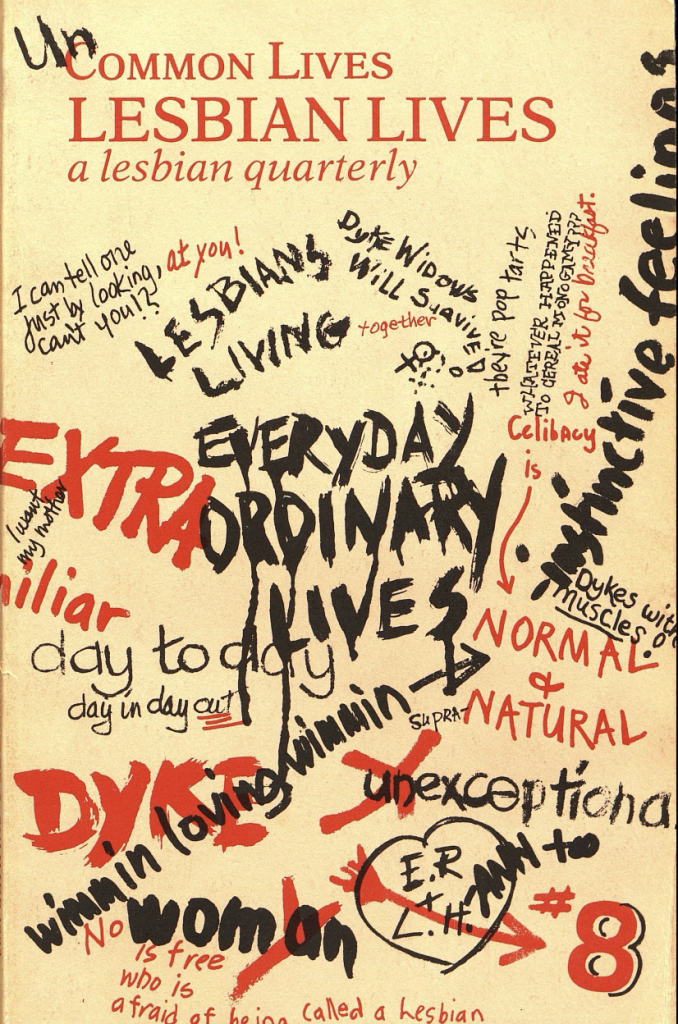 Un
COMMON LIVES
LESBIAN LIVES
a lesbian quarterly
I can tell one
just by looking,
can't you!?
at you!
LESBIANS
LIVING
together
Dyke Widows
Will Survive
they're pop tarts
WHATEVER HAPPENED
TO CEREAL MONOGAMY???
I ate it for breakfast.
instinctive feelings
EXTRA
EVERYDAY
ORDINARY
LIVES
I want
my mother
iliar
Celibacy
is
NORMAL
&
SUPRA-NATURAL
Dykes with
muscles!
day to day
day in day out
DYKE
wimmin loving wimmin
unexceptional
E.R
+
L.H.
ANN to
#8
No woman
is free
who is
afraid of being called a lesbian